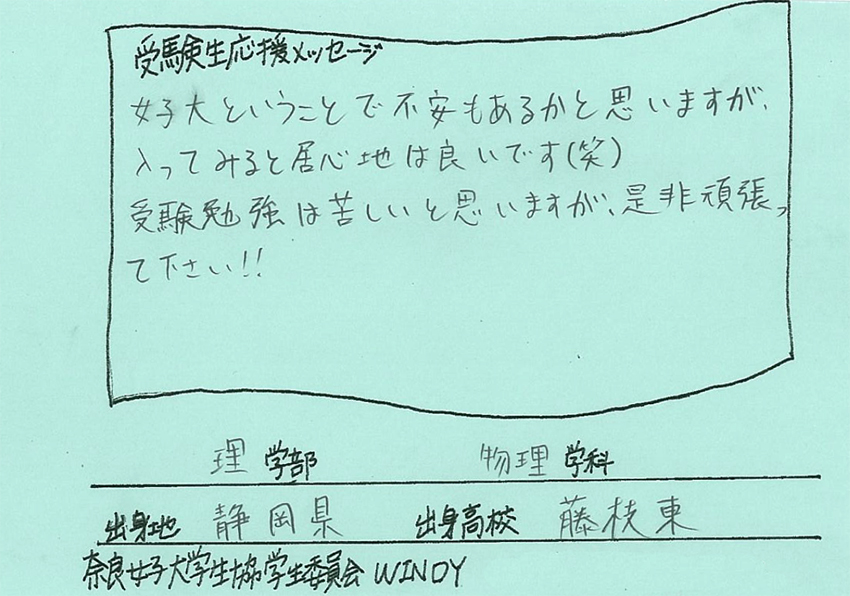 受験生応援メッセージ
女子大ということで不安もあるかと思いますが、
入ってみると居心地は良いです(笑)
受験勉強は苦しいと思いますが、是非頑張っ
て下さい!!
理 学部 物理 学科
出身地 静岡県 出身高校 藤枝東
奈良女子大学生協学生委員会 WINDY